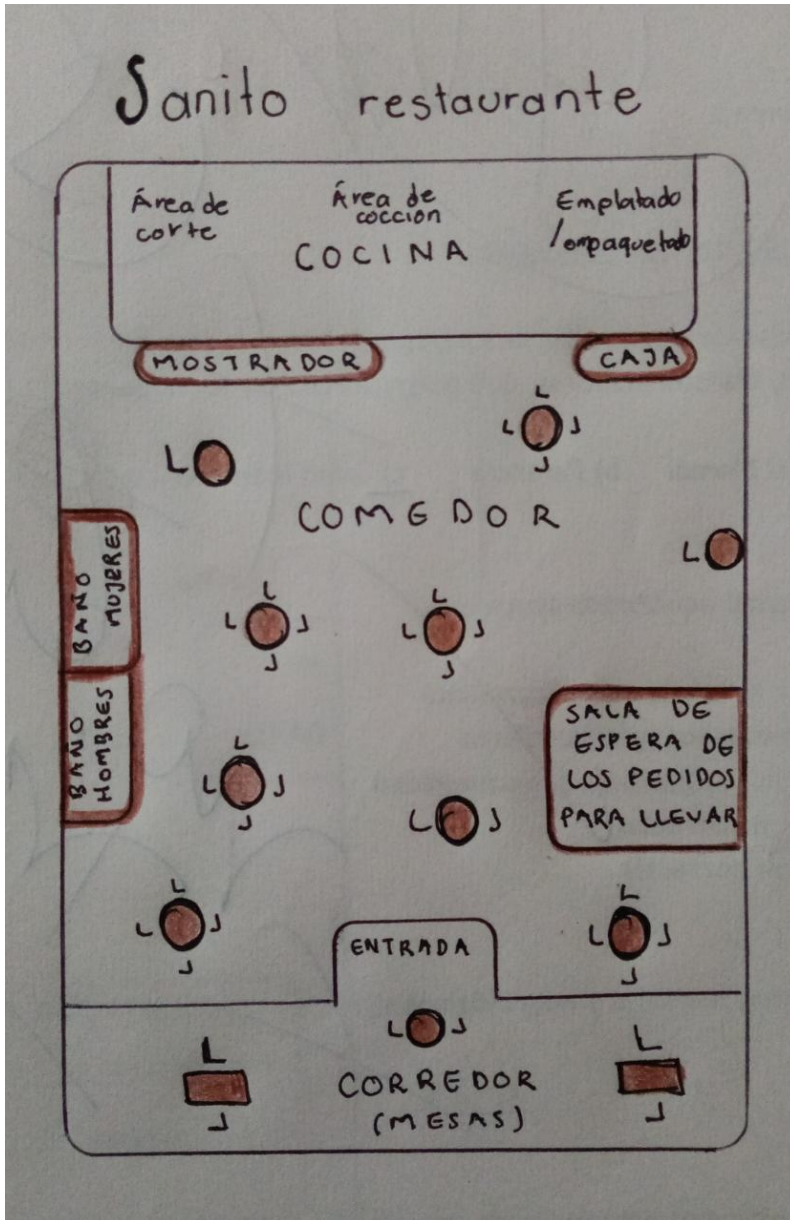 Sanito restaurante
Área de
corte
Área de
cocción
Emplatado
/empaquetado
COCINA
MOSTRADOR
CAJA
COMEDOR
BAÑO
MUJERES
BAÑO
HOMBRES
SALA DE
ESPERA DE
LOS PEDIDOS
PARA LLEVAR
ENTRADA
CORREDOR
(MESAS)